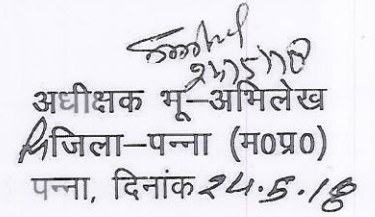 24/5/18
अधीक्षक भू–अभिलेख
जिला–पन्ना (म0प्र0)
पन्ना, दिनांक 24.5.18